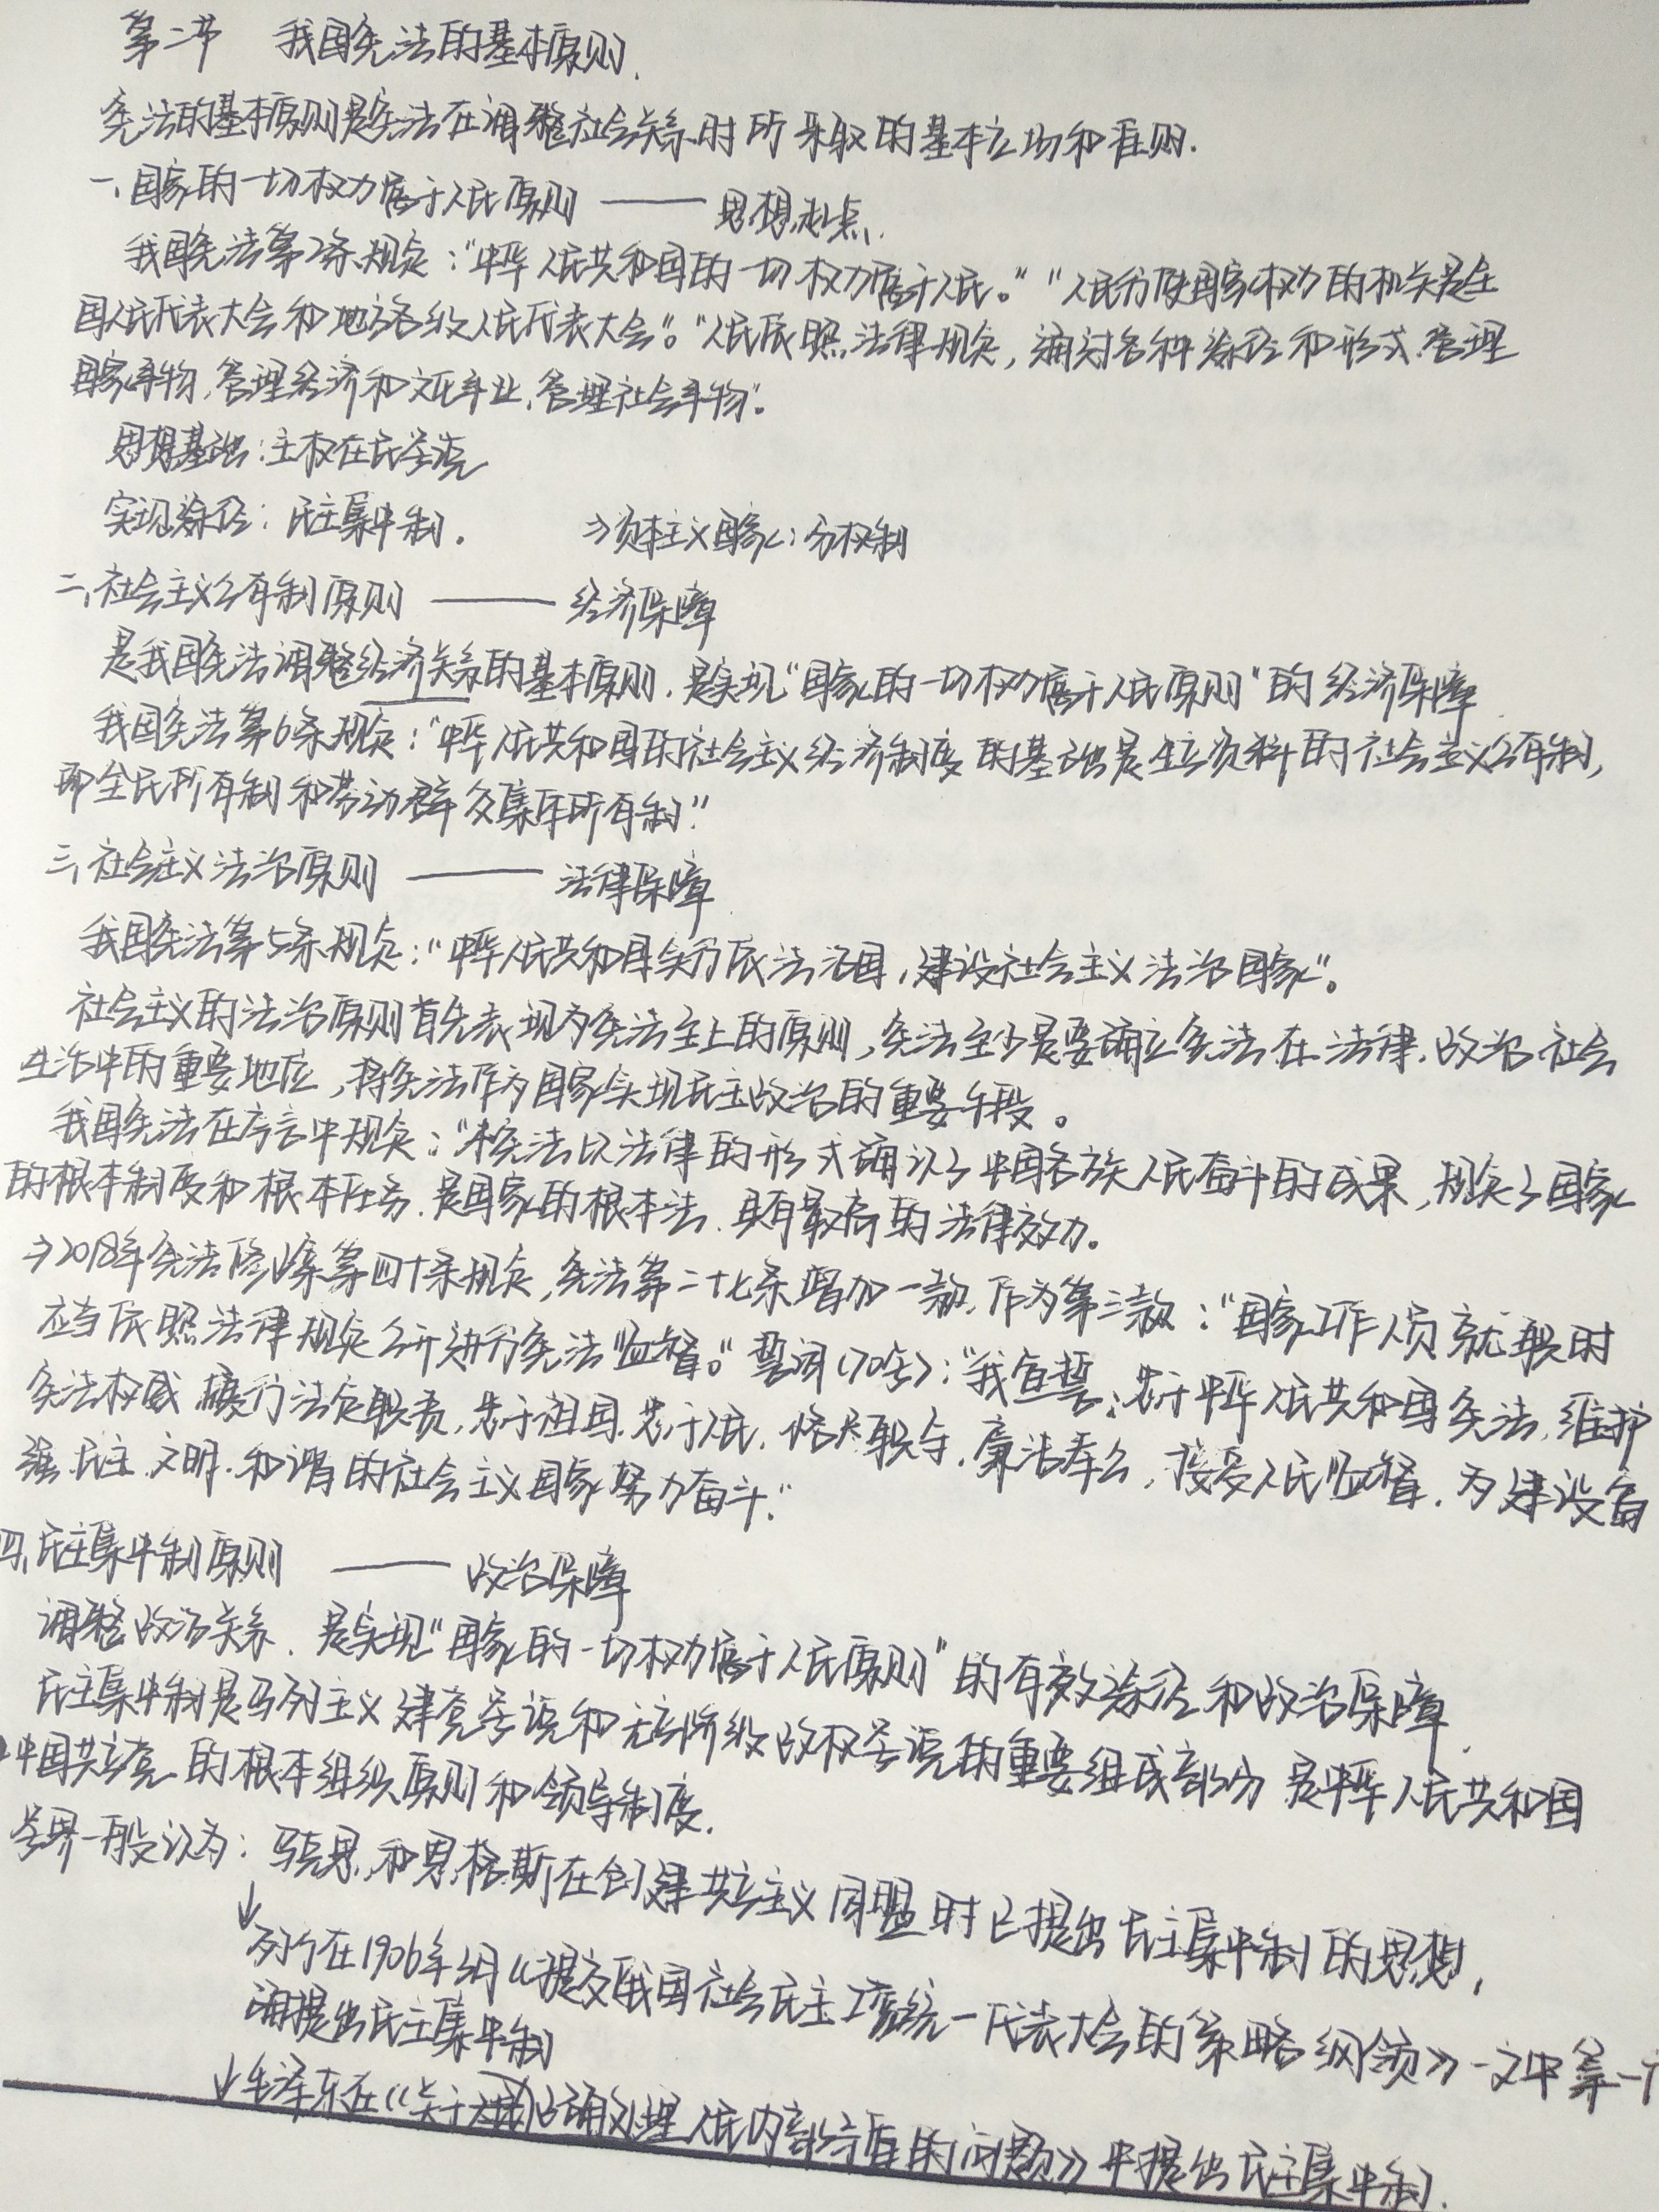 第二节 我国宪法的基本原则.
宪法的基本原则是宪法在调整社会关系时所采取的基本立场和准则.
一、国家的一切权力属于人民原则 —— 思想起点.
我国宪法第2条规定："中华人民共和国的一切权力属于人民。""人民行使国家权力的机关是全
国人民代表大会和地方各级人民代表大会"。"人民依照法律规定，通过各种途径和形式.管理
国家事物，管理经济和文化事业，管理社会事物"。
思想基础：主权在民学说
实现途径：民主集中制. →资本主义国家：分权制
二、社会主义公有制原则 —— 经济保障
是我国宪法调整经济关系的基本原则.是实现"国家的一切权力属于人民原则"的经济保障
我国宪法第6条规定："中华人民共和国的社会主义经济制度的基础是生产资料的社会主义公有制，
即全民所有制和劳动群众集体所有制"
三、社会主义法治原则 —— 法律保障
我国宪法第5条规定："中华人民共和国实行依法治国，建设社会主义法治国家"。
社会主义的法治原则首先表现为宪法至上的原则，宪法至少是要确立宪法在法律.政治社会
生活中的重要地位，将宪法作为国家实现民主政治的重要手段。
我国宪法在序言中规定："本宪法以法律的形式确认了中国各族人民奋斗的成果，规定了国家
的根本制度和根本任务.是国家的根本法.具有最高的法律效力。
→2018年宪法修正案第四十条规定，宪法第二十七条增加一款，作为第三款："国家工作人员就职时
应当依照法律规定公开进行宪法监督。"誓词(70字)："我宣誓：忠于中华人民共和国宪法，维护
宪法权威 履行法定职责，忠于祖国.忠于人民，恪尽职守，廉洁奉公，接受人民监督，为建设富
强.民主.文明.和谐的社会主义国家努力奋斗."
四、民主集中制原则 —— 政治保障
调整政治关系.是实现"国家的一切权力属于人民原则"的有效途径和政治保障.
民主集中制是马列主义建党学说和无产阶级政权学说的重要组成部分 是中华人民共和国
中国共产党的根本组织原则和领导制度.
学界一般认为：马克思和恩格斯在创建共产主义同盟时已提出民主集中制的思想，
↓列宁在1906年3月《提交俄国社会民主工党统一代表大会的策略纲领》一文中第一个
明确提出民主集中制
↓毛泽东在《关于正确处理人民内部矛盾的问题》中提出民主集中制.